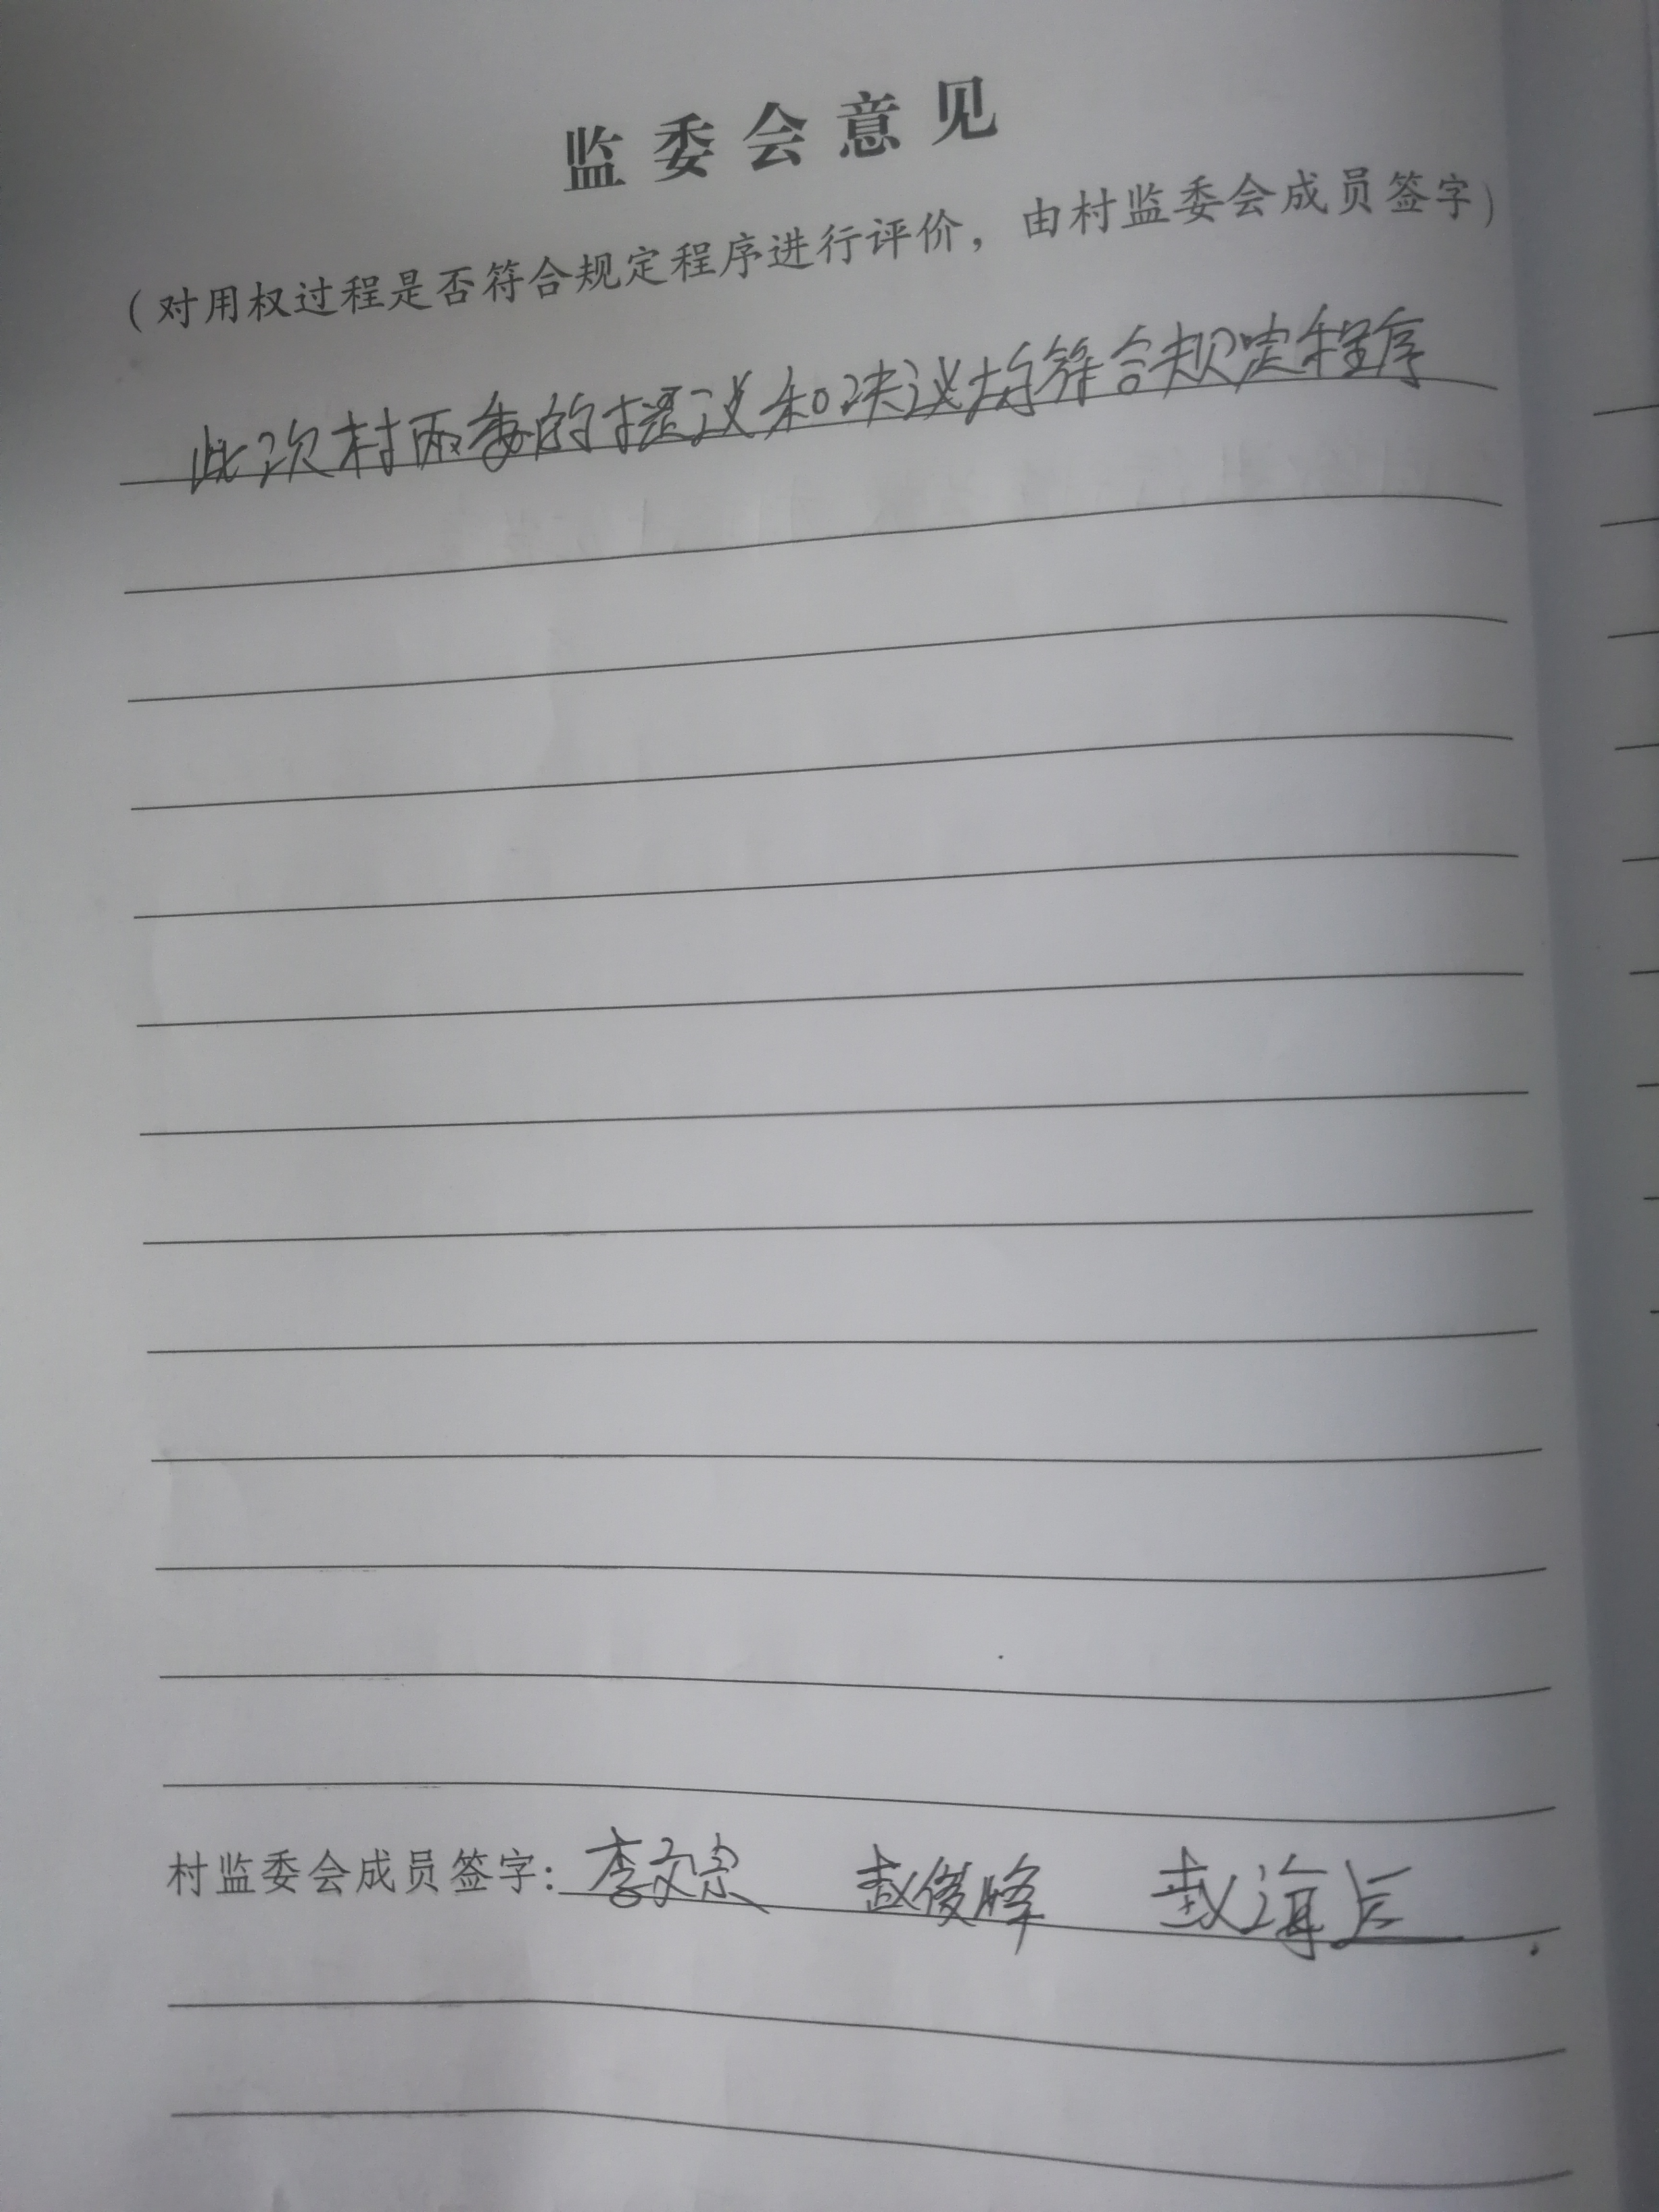 监委会意见
（对用权过程是否符合规定程序进行评价，由村监委会成员签字）
此次村两委的提议和决议均符合规定程序
村监委会成员签字：李文宗 赵俊峰 赵海后